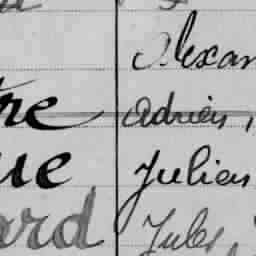 Alexan
re Adrien,
ue Julien
ard Jules,